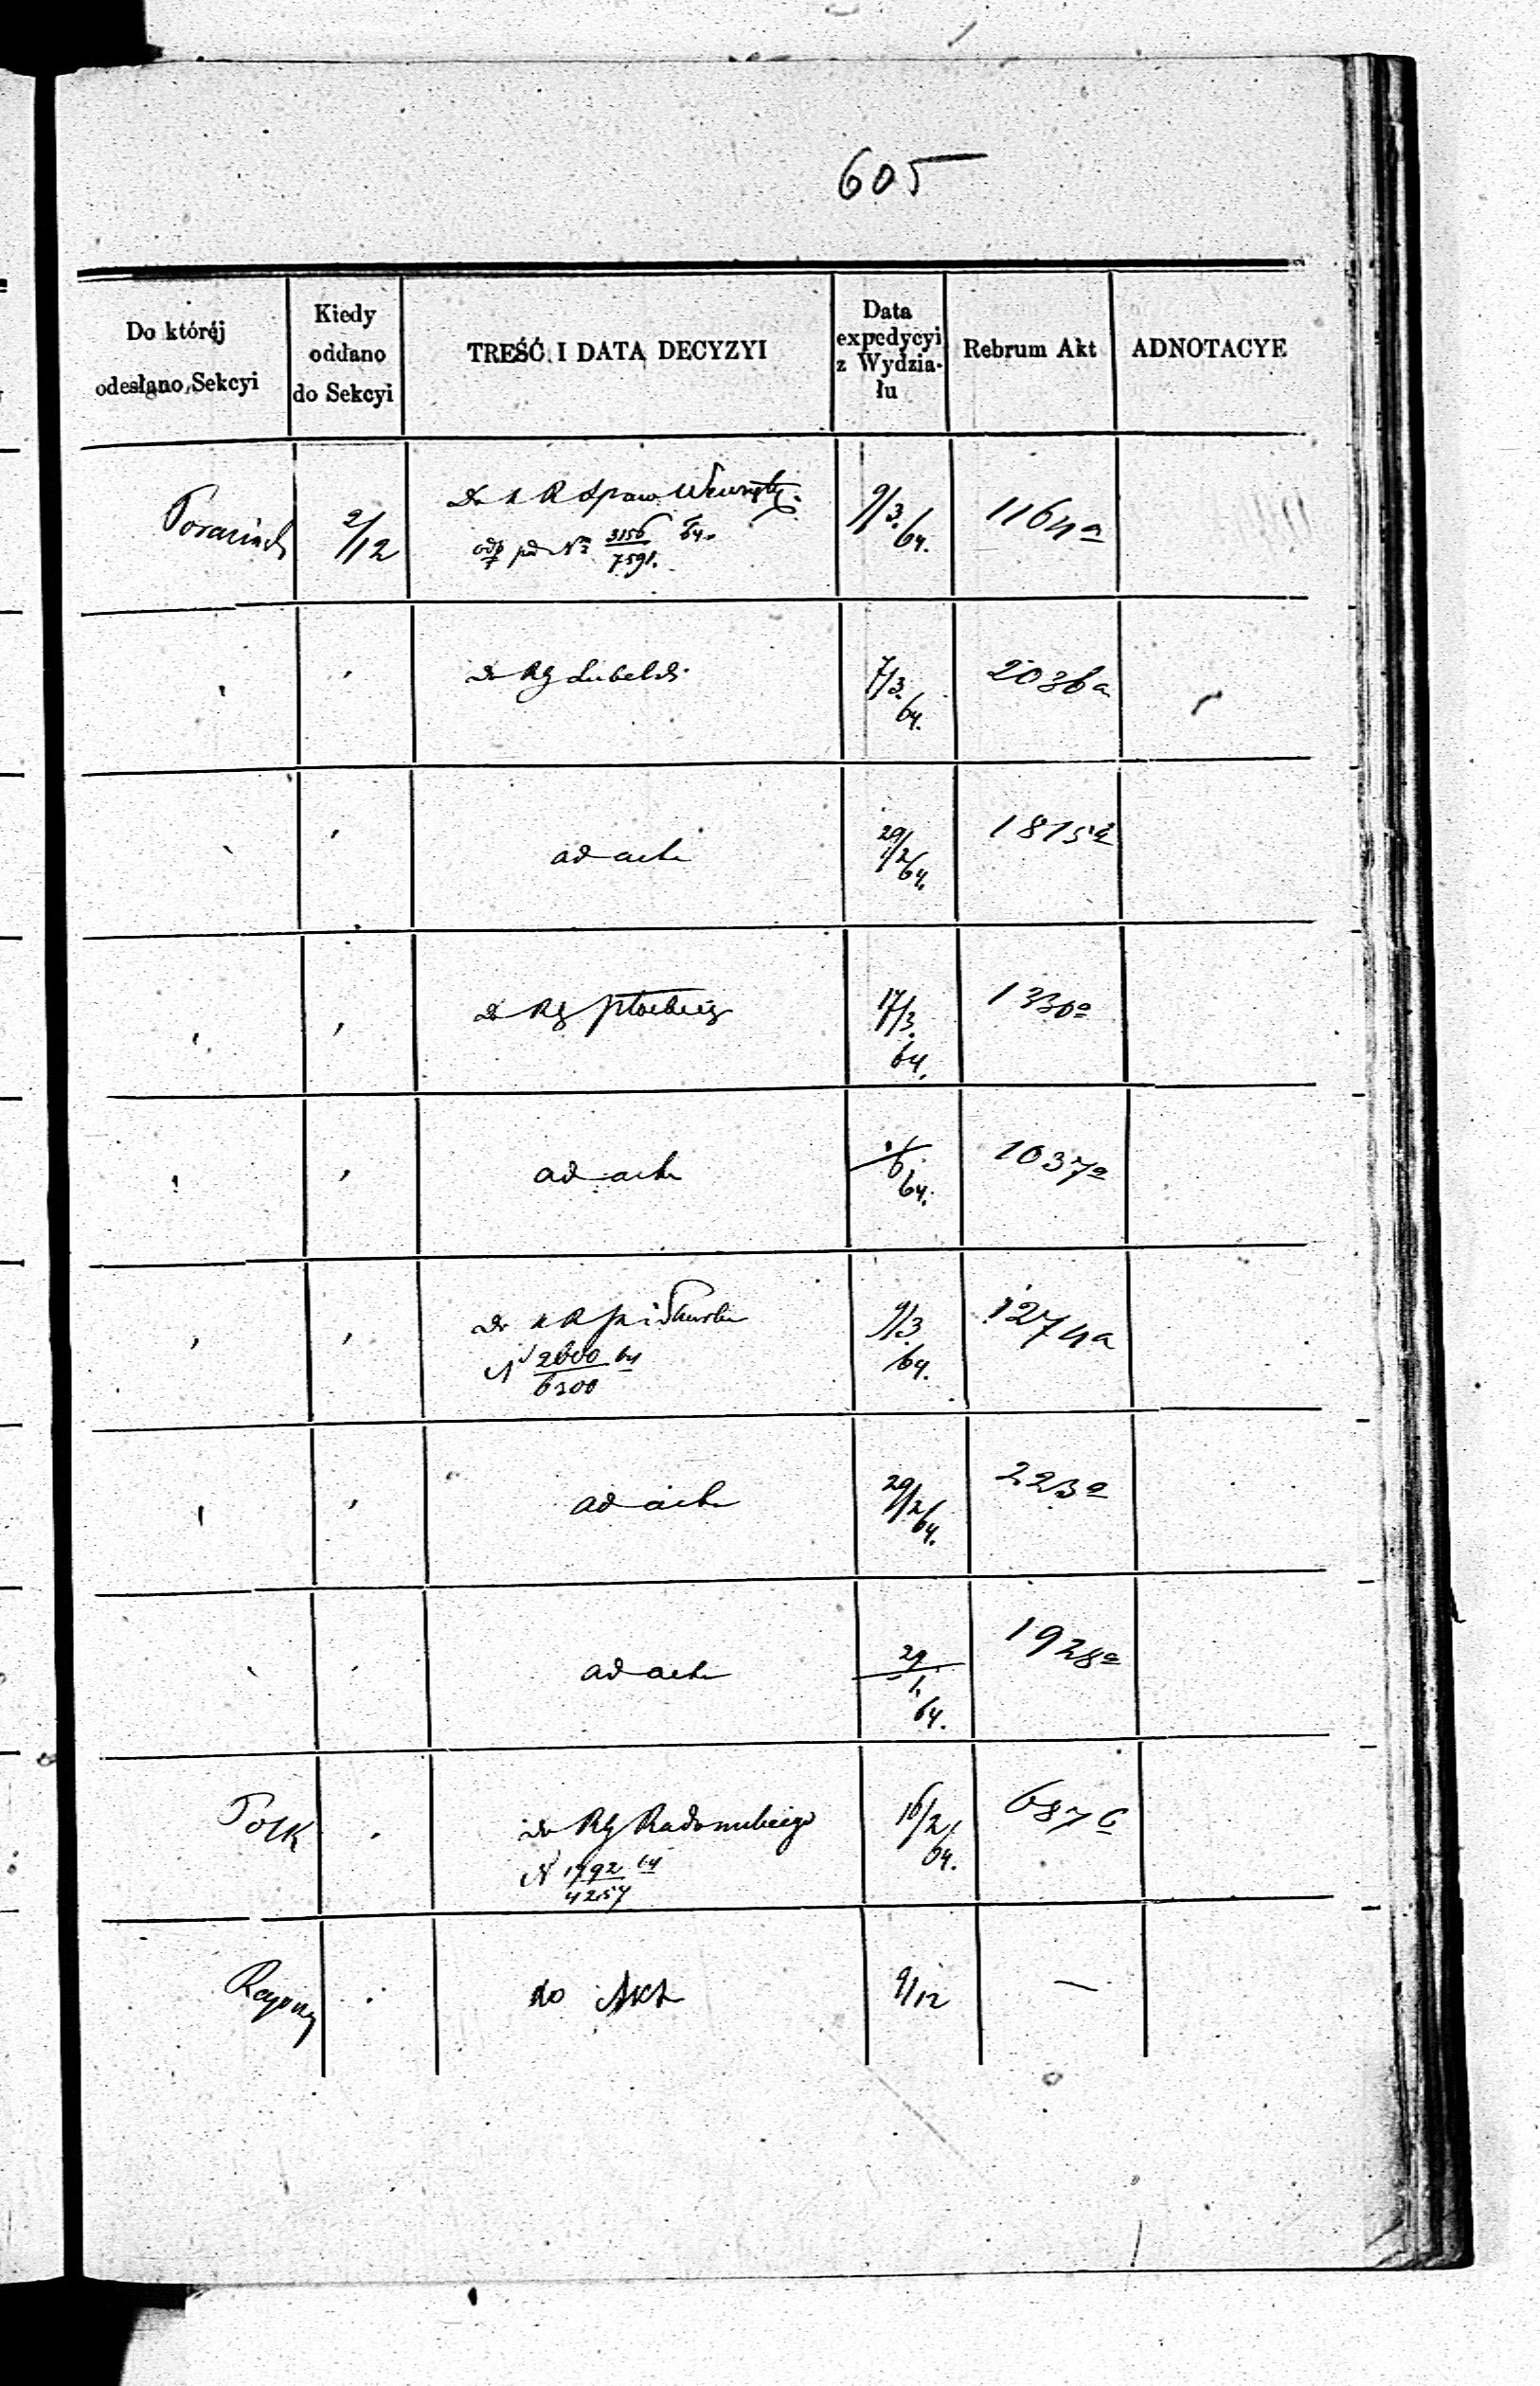 605
Do któréj odesłano Sekcyi
Kiedy oddano do Sekcyi
TREŚĆ I DATA DECYZYI
Data expedycyi z Wydziału
Rebrum Akt
ADNOTACYE
2/12
Do K R Spraw Wewnętrz.
odp pod No 3156/7591. 64.
9/3. 64.
1164a
Do RG Lubelsk.
7/3. 64.
2036a
ad acta
29/2 64.
1815a
Do RG Płockiego
17/3. 64.
1330a
ad acta
64.
1037a
Do K R P i Skarbu
N 2600/6300 64
9/3 64.
1274a
ad acta
29/2 64.
223a
ad acta
29/1. 64.
1928a
Polk
Do RG Radomskiego
N 1792/4254 64
16/2 64.
687c
do Akt
9/12
—